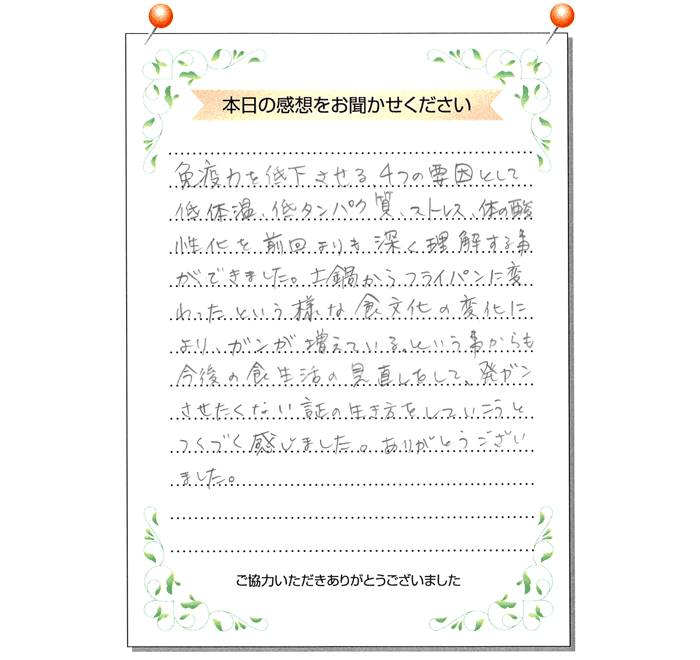 本日の感想をお聞かせください
免疫力を低下させる、4つの要因として
低体温、低タンパク質、ストレス、体の酸
性化を前回よりも深く理解する事
ができました。土鍋からフライパンに変
わったという様な食文化の変化に
より、ガンが増えている。という事からも
今後の食生活の見直しをして、発ガン
させたくない 生き方をしていこうと
つくづく感じました。ありがとうござい
ました。
ご協力いただきありがとうございました